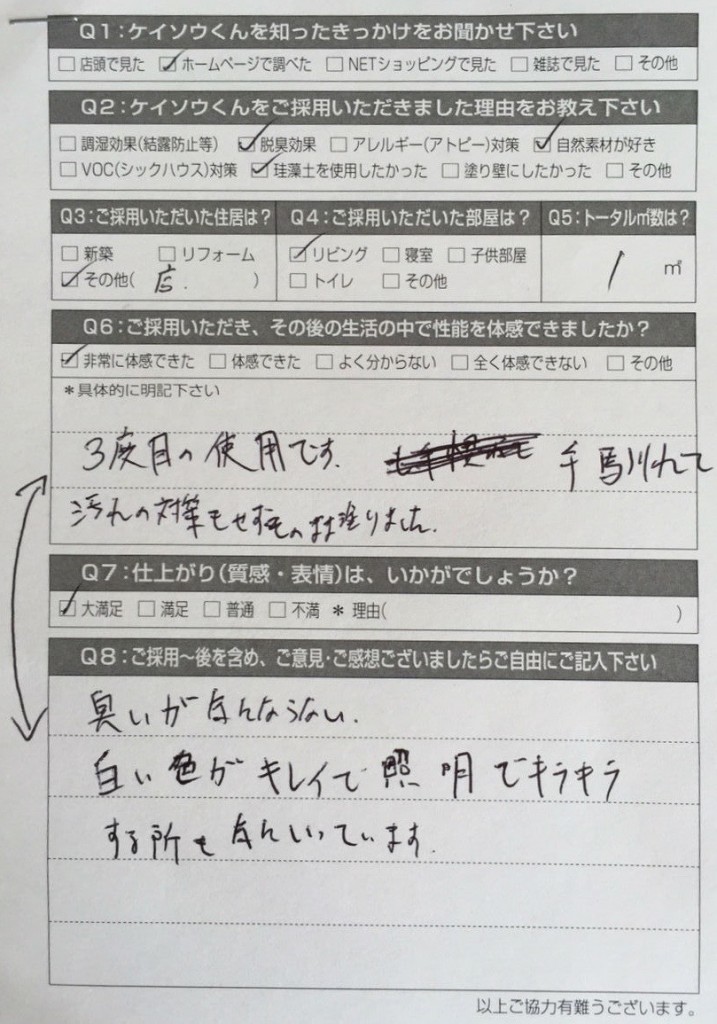 Q1:ケイソウくんを知ったきっかけをお聞かせ下さい
□店頭で見た ☑ホームページで調べた □NETショッピングで見た □雑誌で見た □その他
Q2:ケイソウくんをご採用いただきました理由をお教え下さい
□調湿効果(結露防止等) ☑脱臭効果 □アレルギー(アトピー)対策 ☑自然素材が好き
□VOC(シックハウス)対策 ☑珪藻土を使用したかった □塗り壁にしたかった □その他
Q3:ご採用いただいた住居は? Q4:ご採用いただいた部屋は? Q5:トータル㎡数は?
□新築 □リフォーム ☑リビング □寝室 □子供部屋 / ㎡
☑その他( 店. ) □トイレ □その他
Q6:ご採用いただき、その後の生活の中で性能を体感できましたか?
☑非常に体感できた □体感できた □よく分からない □全く体感できない □その他
*具体的に明記下さい
3度目の使用です.
汚れの対策もせず 塗りました.
Q7:仕上がり(質感・表情)は、いかがでしょうか?
☑大満足 □満足 □普通 □不満 * 理由( )
Q8:ご採用〜後を含め、ご意見・ご感想ございましたらご自由にご記入下さい
臭いが
白い色がキレイで照明でキラキラ
する所も います.
以上ご協力有難うございます。